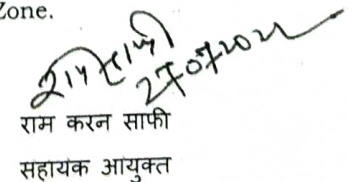 Zone.
27/07/2021
राम करन साफी
सहायक आयुक्त